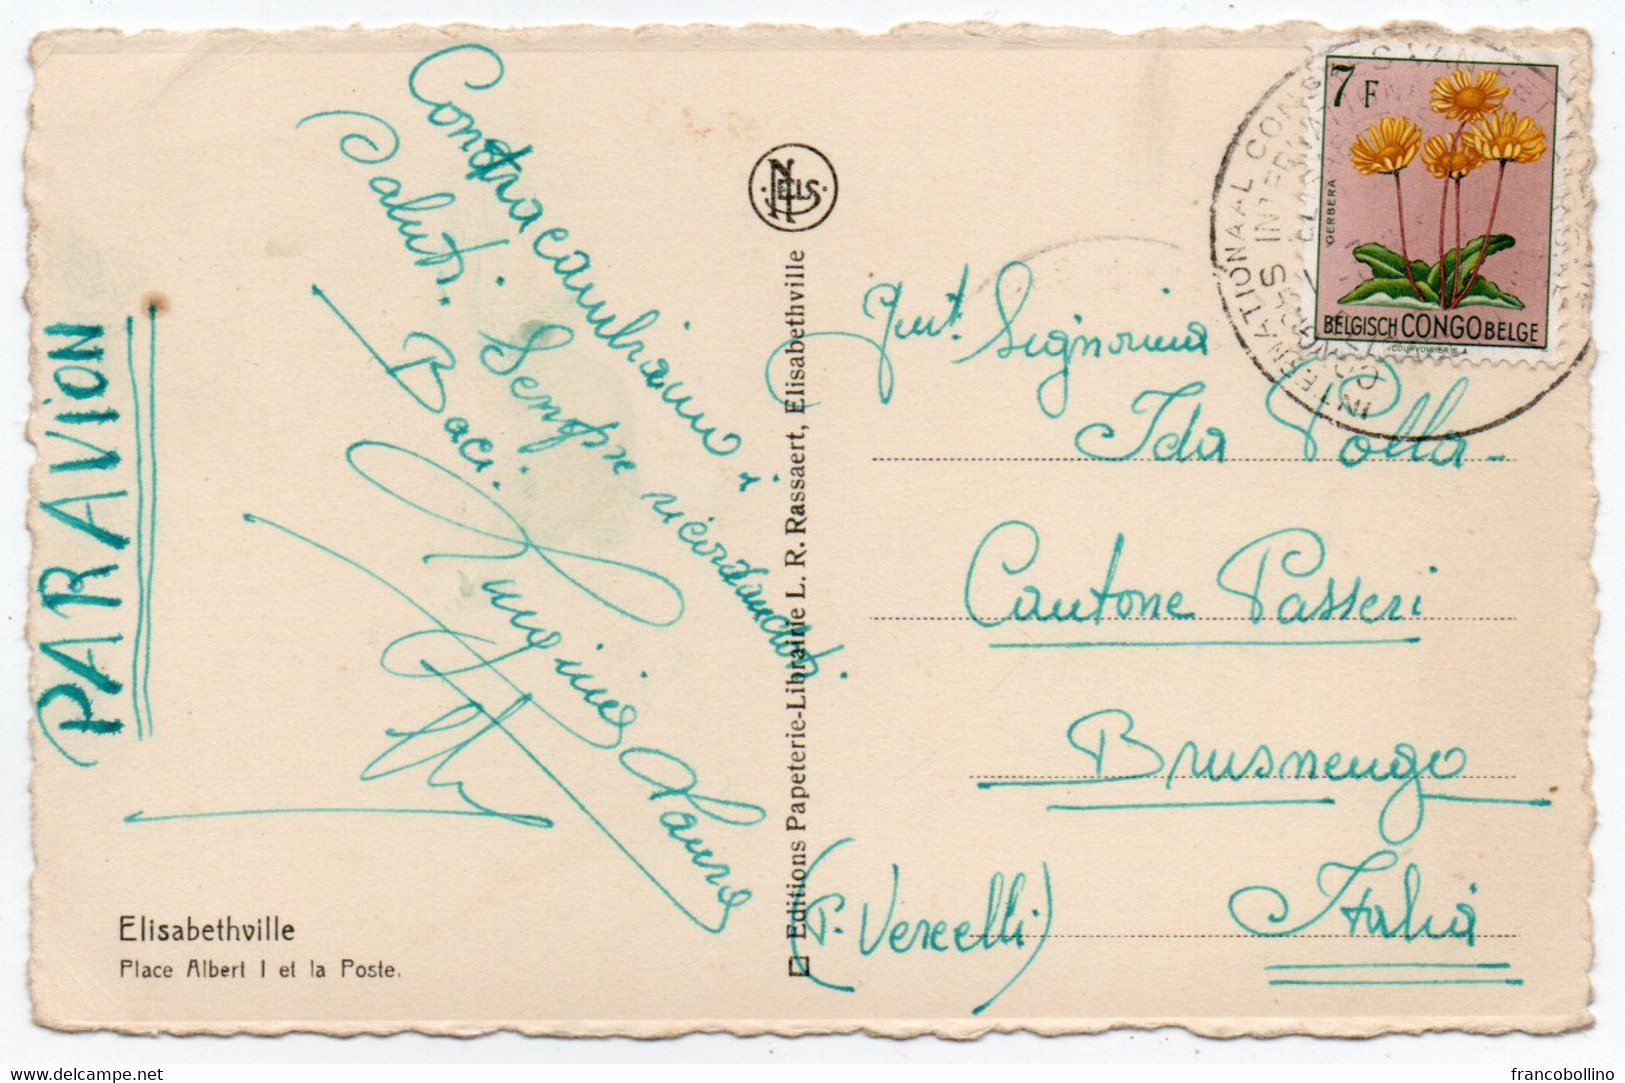 PAR AVION
Contraccambiamo i
saluti. Sempre ricordandoti.
Baci.
Laura
Elisabethville
Place Albert I et la Poste.
NELS
Editions Papeterie-Librairie L. R. Rassaert, Elisabethville
7 F
GERBERA
BELGISCH CONGO BELGE
COURVOISIER S.A.
INTERNATIONAAL CONGRES VAN
Gent. Signorina
Ida Polla
Cantone Passeri
Brusnengo
(P. Vercelli)
Italia
delcampe.net
francobollino